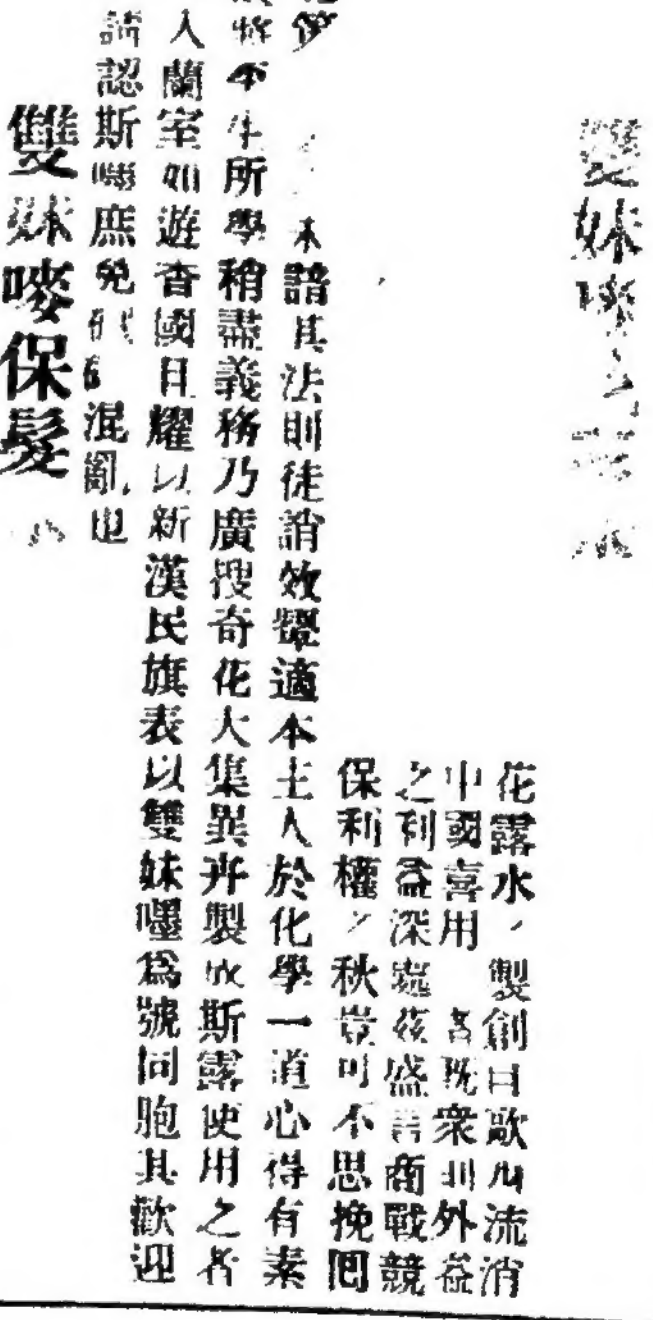 雙妹嘜花露水
花露水之製創自歐州流消
中國喜用者既衆則外益
之利益深處茲盛言商戰競
保利權之秋豈可不思挽回
未諳其法則徒誚效顰適本主人於化學一道心得有素
將本生所學稍盡義務乃廣搜奇花大集異卉製成斯露使用之者
入蘭室如遊香國且耀以新漢民旗表以雙妹嚜爲號同胞其歡迎
請認斯嚜庶免 混亂也
雙妹嘜保髮